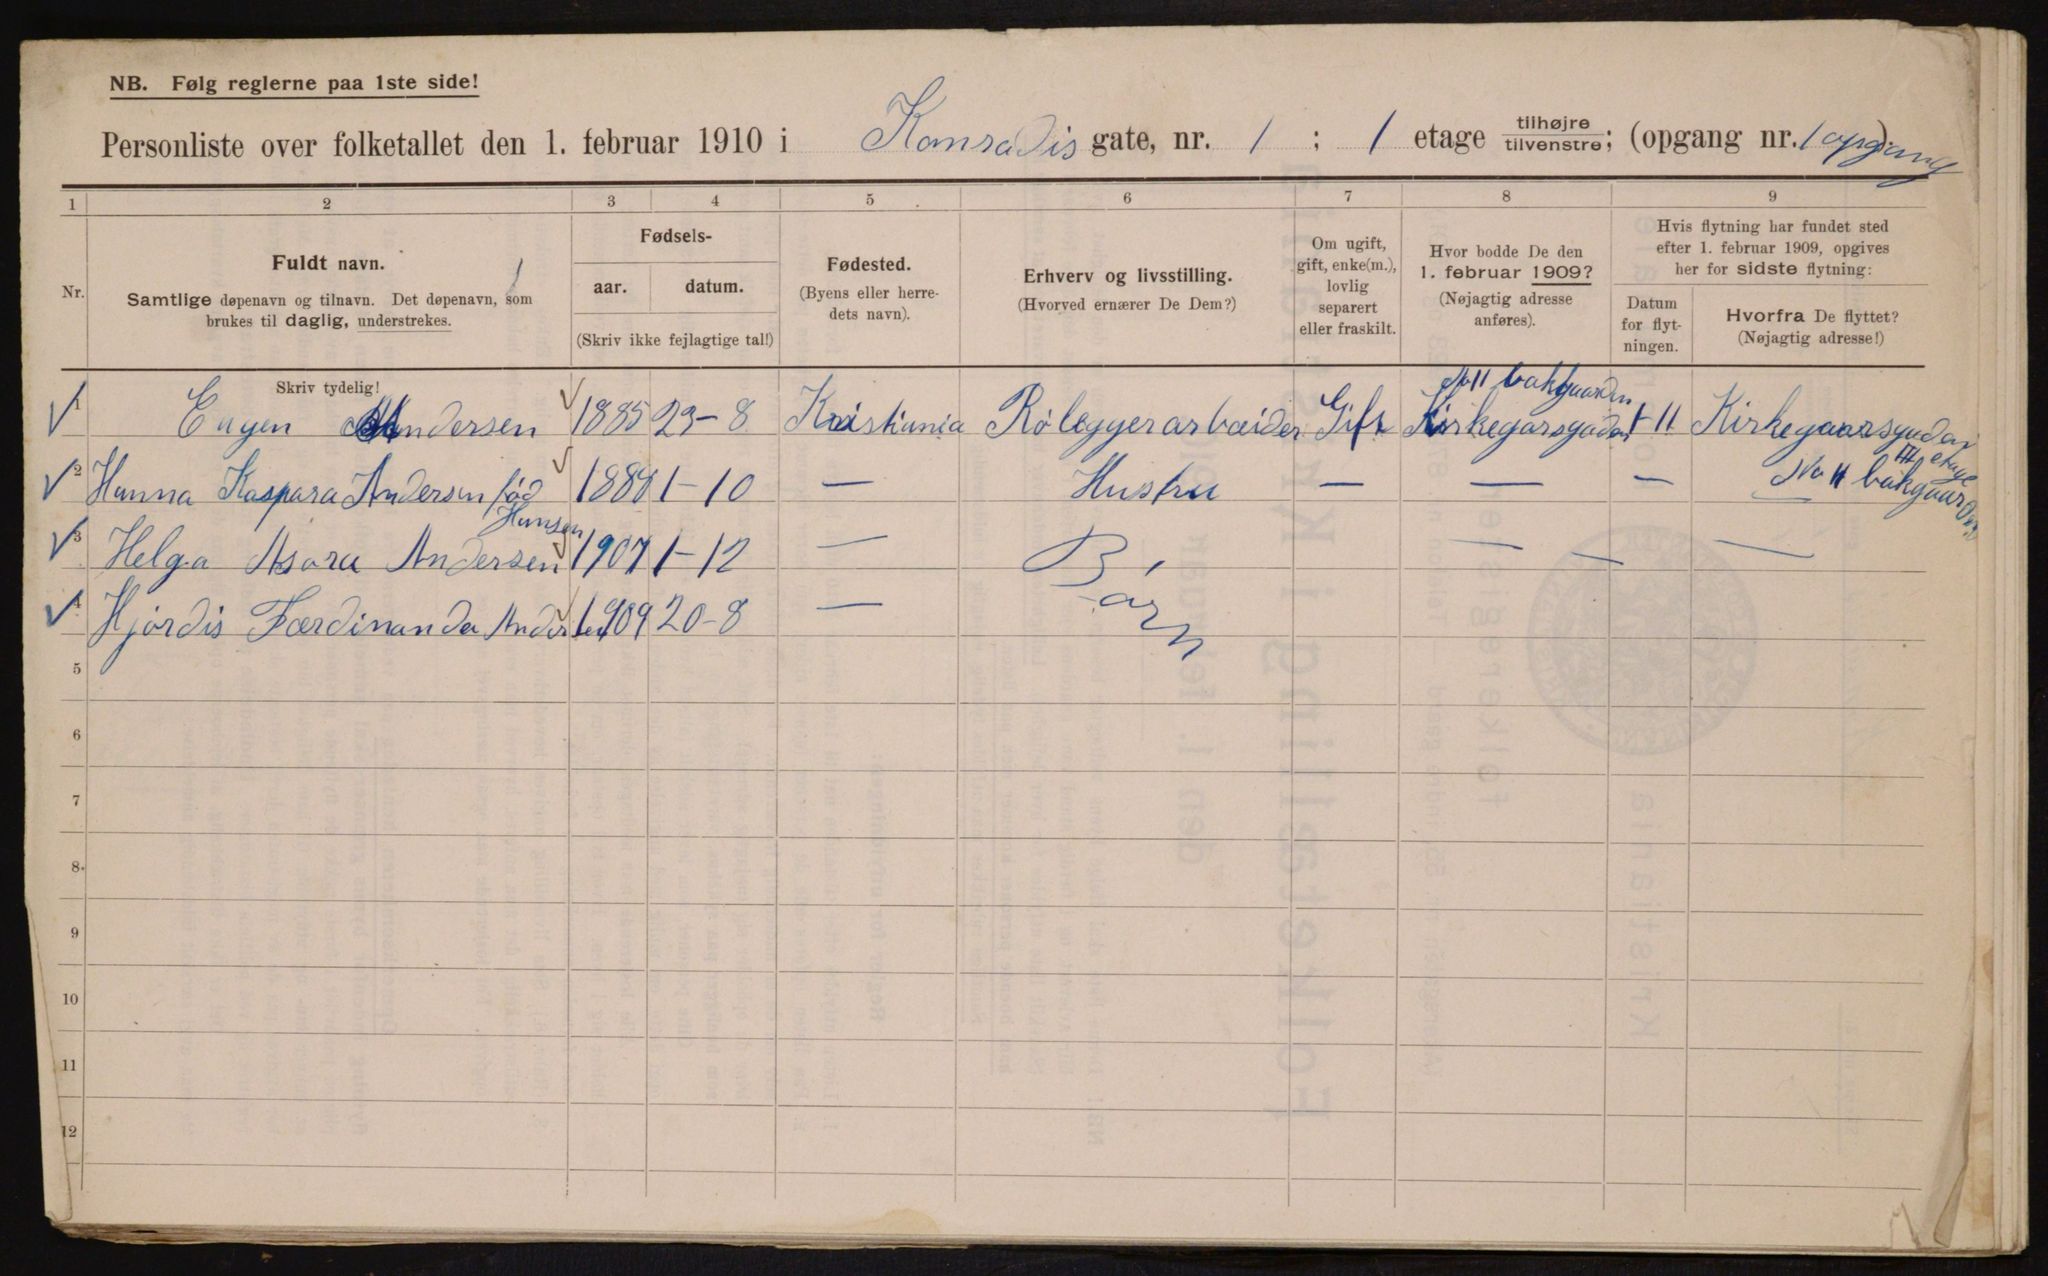 NB. Følg reglerne paa 1ste side!
Personliste over folketallet den 1. februar 1910 i Konradis gate, nr. 1 ; 1 etage tilhøjre/tilvenstre; (opgang nr. 1 opgang).
1 2 3 4 5 6 7 8 9
Nr.
Fuldt navn.
Samtlige døpenavn og tilnavn. Det døpenavn, som
brukes til daglig, understrekes.
Fødsels-
aar. datum.
(Skriv ikke fejlagtige tal!)
Fødested.
(Byens eller herre-
dets navn).
Erhverv og livsstilling.
(Hvorved ernærer De Dem?)
Om ugift,
gift, enke(m.),
lovlig
separert
eller fraskilt.
Hvor bodde De den
1. februar 1909?
(Nøjagtig adresse
anføres).
Hvis flytning har fundet sted
efter 1. februar 1909, opgives
her for sidste flytning:
Datum
for flyt-
ningen.
Hvorfra De flyttet?
(Nøjagtig adresse!)
Skriv tydelig!
No 11 bakgaarden
1 Eugen Andersen 1885 29-8 Kristiania Røleggerarbeider Gift Kirkegarsgaden 1-11 Kirkegaarsgaden
III etage
2 Hanna Kaspara Andersen fød 1-10 — Hustru — — — No 11 bakgaarden
Hansen
3 Helga Asora Andersen 1907 1-12 — Børn — — —
4 Hjørdis Færdinanda Andersen 1909 20-8 —
5
6
7
8
9
10
11
12